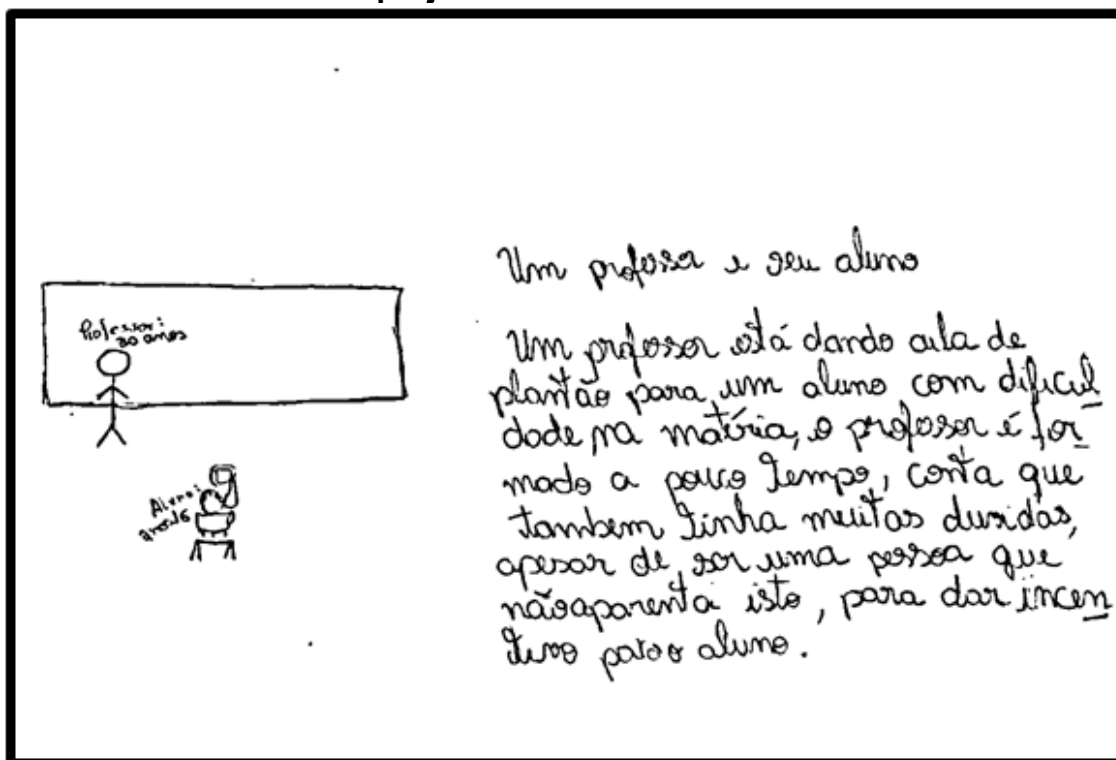 Professor:
30 anos
Aluno:
anos16
Um professor e seu aluno
Um professor está dando aula de
plantão para um aluno com dificul
dade na matéria, o professor é for
mado a pouco tempo, conta que
tambem tinha muitas duvidas,
apesar de ser uma pessoa que
não aparenta isto, para dar incen
tivo para o aluno.